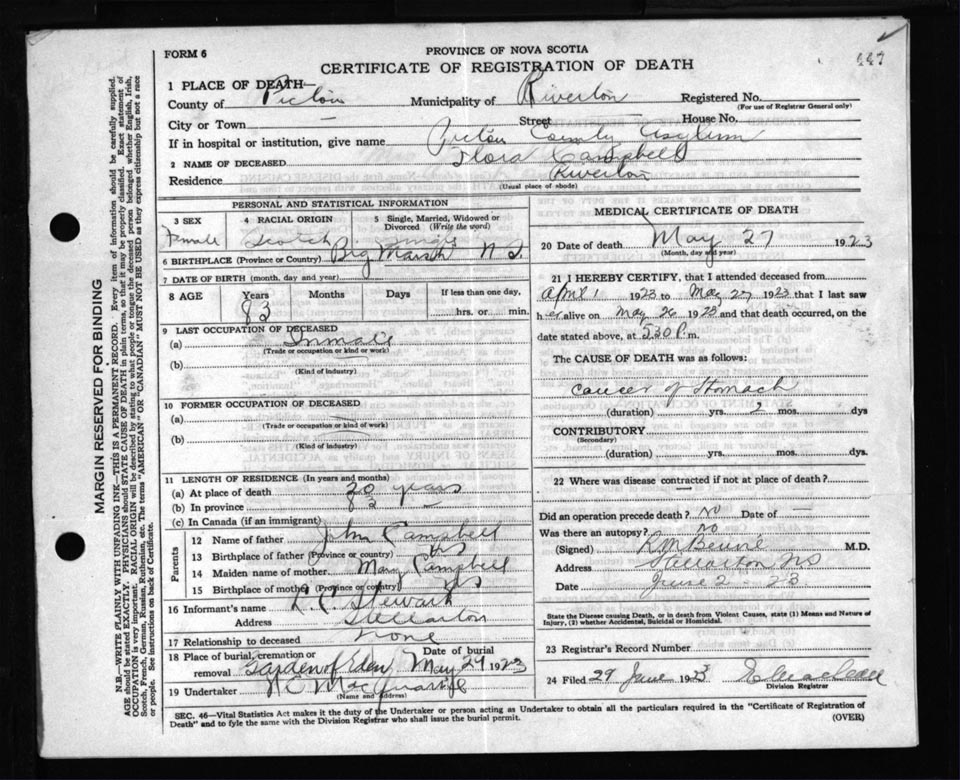 FORM 6
PROVINCE OF NOVA SCOTIA
CERTIFICATE OF REGISTRATION OF DEATH
447
1 PLACE OF DEATH—
County of Pictou Municipality of Riverton Registered No.
(For use of Registrar General only)
City or Town — Street — House No.
If in hospital or institution, give name Pictou County Asylum
2 NAME OF DECEASED Flora Campbell
Residence Riverton
(Usual place of abode)
PERSONAL AND STATISTICAL INFORMATION
3 SEX 4 RACIAL ORIGIN 5 Single, Married, Widowed or Divorced (Write the word)
Female Scotch Single
6 BIRTHPLACE (Province or Country) Big Marsh N S.
7 DATE OF BIRTH (month, day and year)
8 AGE Years Months Days If less than one day,
83 hrs. or min.
9 LAST OCCUPATION OF DECEASED
(a) Inmate
(Trade or occupation or kind or work)
(b)
(Kind of industry)
10 FORMER OCCUPATION OF DECEASED
(a)
(Trade or occupation or kind or work)
(b)
(Kind of industry)
11 LENGTH OF RESIDENCE (In years and months)
(a) At place of death 20 years
(b) In province 83
(c) In Canada (if an immigrant)
Parents
12 Name of father John Campbell
13 Birthplace of father (Province or country) NS
14 Maiden name of mother Mary Campbell
15 Birthplace of mother (Province or country) NS
16 Informant's name Stewart
Address Stellarton
17 Relationship to deceased None
18 Place of burial, cremation or removal Garden of Eden Date of burial May 29 1923
19 Undertaker
(Name and address)
MEDICAL CERTIFICATE OF DEATH
20 Date of death May 27 1923
(Month, day and year)
21 I HEREBY CERTIFY, that I attended deceased from
April 1 1923 to May 27 1923 that I last saw
her alive on May 26 1923 and that death occurred, on the
date stated above, at 5.30 P.m.
The CAUSE OF DEATH was as follows:
Cancer of Stomach
(duration) yrs. 2 mos. dys
CONTRIBUTORY
(Secondary)
(duration) yrs. mos. dys.
22 Where was disease contracted if not at place of death?
—
Did an operation precede death? No Date of —
Was there an autopsy? No
(Signed) M.D.
Address Stellarton NS
Date June 2 - 23
State the Disease causing Death, or in death from Violent Causes, state (1) Means and Nature of
Injury, (2) whether Accidental, Suicidal or Homicidal.
23 Registrar's Record Number
24 Filed 29 June 1923
Division Registrar
SEC. 46—Vital Statistics Act makes it the duty of the Undertaker or person acting as Undertaker to obtain all the particulars required in the "Certificate of Registration of
Death" and to fyle the same with the Division Registrar who shall issue the burial permit.
(OVER)
MARGIN RESERVED FOR BINDING
N.B.—WRITE PLAINLY WITH UNFADING INK—THIS IS A PERMANENT RECORD. Every item of information should be carefully supplied.
AGE should be stated EXACTLY. PHYSICIANS should STATE CAUSE OF DEATH in plain terms, so that it may be properly classified. Exact statement of
OCCUPATION is very important. RACIAL ORIGIN will be described by stating to what people or tongue the deceased person belonged whether English, Irish,
Scotch, French, German, Russian, Ruthenian, etc. The terms "AMERICAN" OR "CANADIAN" MUST NOT BE USED as they express citizenship but not a race
or people. See instructions on back of Certificate.